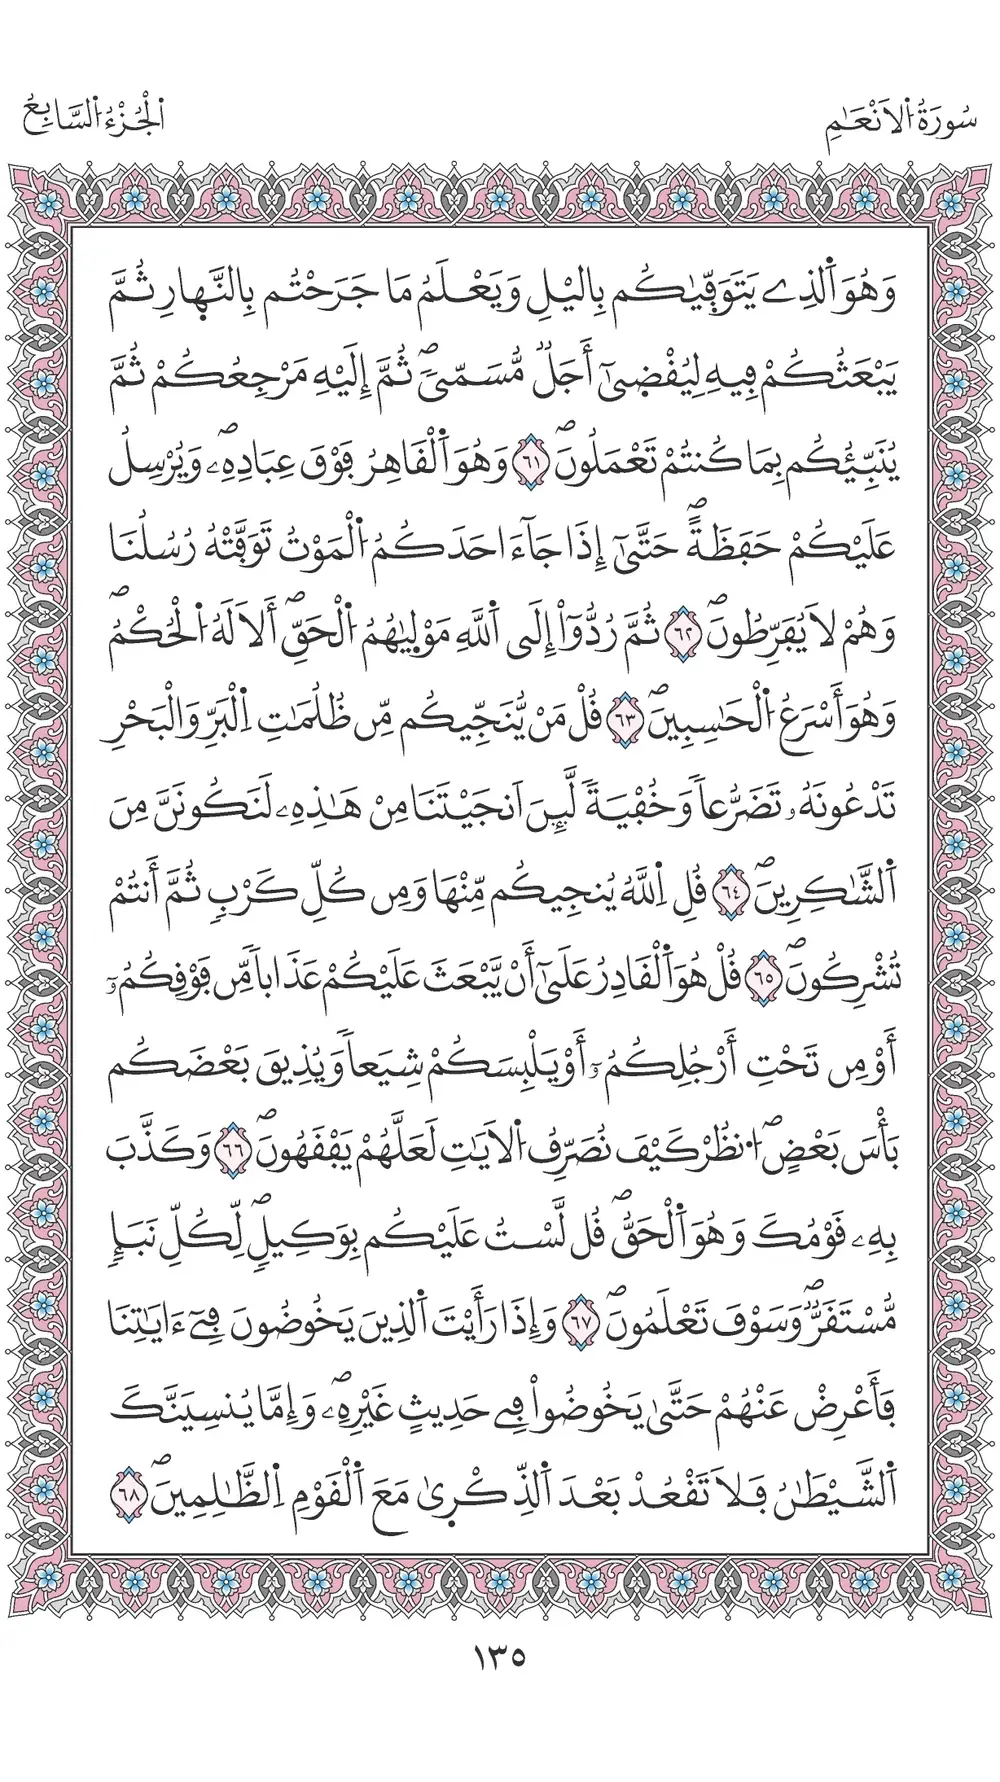 سُورَةُ اُلَانْعَٰمِ
اُلْجُزْءُ اُلسَّابِعُ
وَهُوَ اَ۬لذِے يَتَوَفّ۪يٰكُم بِاليْلِ وَيَعْلَمُ مَا جَرَحْتُم بِالنَّه۪ارِ ثُمَّ
يَبْعَثُكُمْ فِيهِ لِيُقْض۪ىٰٓ أَجَلٞ مُّسَمّيۖ ثُمَّ إِلَيْهِ مَرْجِعُكُمْ ثُمَّ
يُنَبِّئُكُم بِمَا كُنتُمْ تَعْمَلُونَۖ ٦١ وَهُوَ اَ۬لْقَاهِرُ فَوْقَ عِبَادِهِۦۖ وَيُرْسِلُ
عَلَيْكُمْ حَفَظَةًۖ حَتَّىٰٓ إِذَا جَآءَ احَدَكُمُ اُ۬لْمَوْتُ تَوَفَّتْهُ رُسُلُنَا
وَهُمْ لَا يُفَرِّطُونَۖ ٦٢ ثُمَّ رُدُّوٓاْ إِلَى اَ۬للَّهِ مَوْل۪يٰهُمُ اُ۬لْحَقِّۖ أَلَا لَهُ اُ۬لْحُكْمُۖ
وَهُوَ أَسْرَعُ اُ۬لْحَٰسِبِينَۖ ٦٣ قُلْ مَنْ يُّنَجِّيكُم مِّن ظُلُمَٰتِ اِ۬لْبَرِّ وَالْبَحْرِ
تَدْعُونَهُۥ تَضَرُّعاٗ وَخُفْيَةٗ لَّئِنَ اَنجَيْتَنَا مِنْ هَٰذِهِۦ لَنَكُونَنَّ مِنَ
اَ۬لشَّٰكِرِينَۖ ٦٤ قُلِ اِ۬للَّهُ يُنجِيكُم مِّنْهَا وَمِن كُلِّ كَرْبٖ ثُمَّ أَنتُمْ
تُشْرِكُونَۖ ٦٥ قُلْ هُوَ اَ۬لْقَادِرُ عَلَىٰٓ أَنْ يَّبْعَثَ عَلَيْكُمْ عَذَاباٗ مِّن فَوْقِكُمُۥٓ
أَوْ مِن تَحْتِ أَرْجُلِكُمُۥٓ أَوْ يَلْبِسَكُمْ شِيَعاٗ وَيُذِيقَ بَعْضَكُم
بَأْسَ بَعْضٍۖ اُ۟نظُرْ كَيْفَ نُصَرِّفُ اُ۬لَايَٰتِ لَعَلَّهُمْ يَفْقَهُونَۖ ٦٦ وَكَذَّبَ
بِهِۦ قَوْمُكَ وَهُوَ اَ۬لْحَقُّۖ قُل لَّسْتُ عَلَيْكُم بِوَكِيلٖۖ لِّكُلِّ نَبَإٖ
مُّسْتَقَرّٞۖ وَسَوْفَ تَعْلَمُونَۖ ٦٧ وَإِذَا رَأَيْتَ اَ۬لذِينَ يَخُوضُونَ فِےٓ ءَايَٰتِنَا
فَأَعْرِضْ عَنْهُمْ حَتَّىٰ يَخُوضُواْ فِے حَدِيثٍ غَيْرِهِۦۖ وَإِمَّا يُنسِيَنَّكَ
اَ۬لشَّيْطَٰنُ فَلَا تَقْعُدْ بَعْدَ اَ۬لذِّكْر۪ىٰ مَعَ اَ۬لْقَوْمِ اِ۬لظَّٰلِمِينَۖ ٦٨
١٣٥